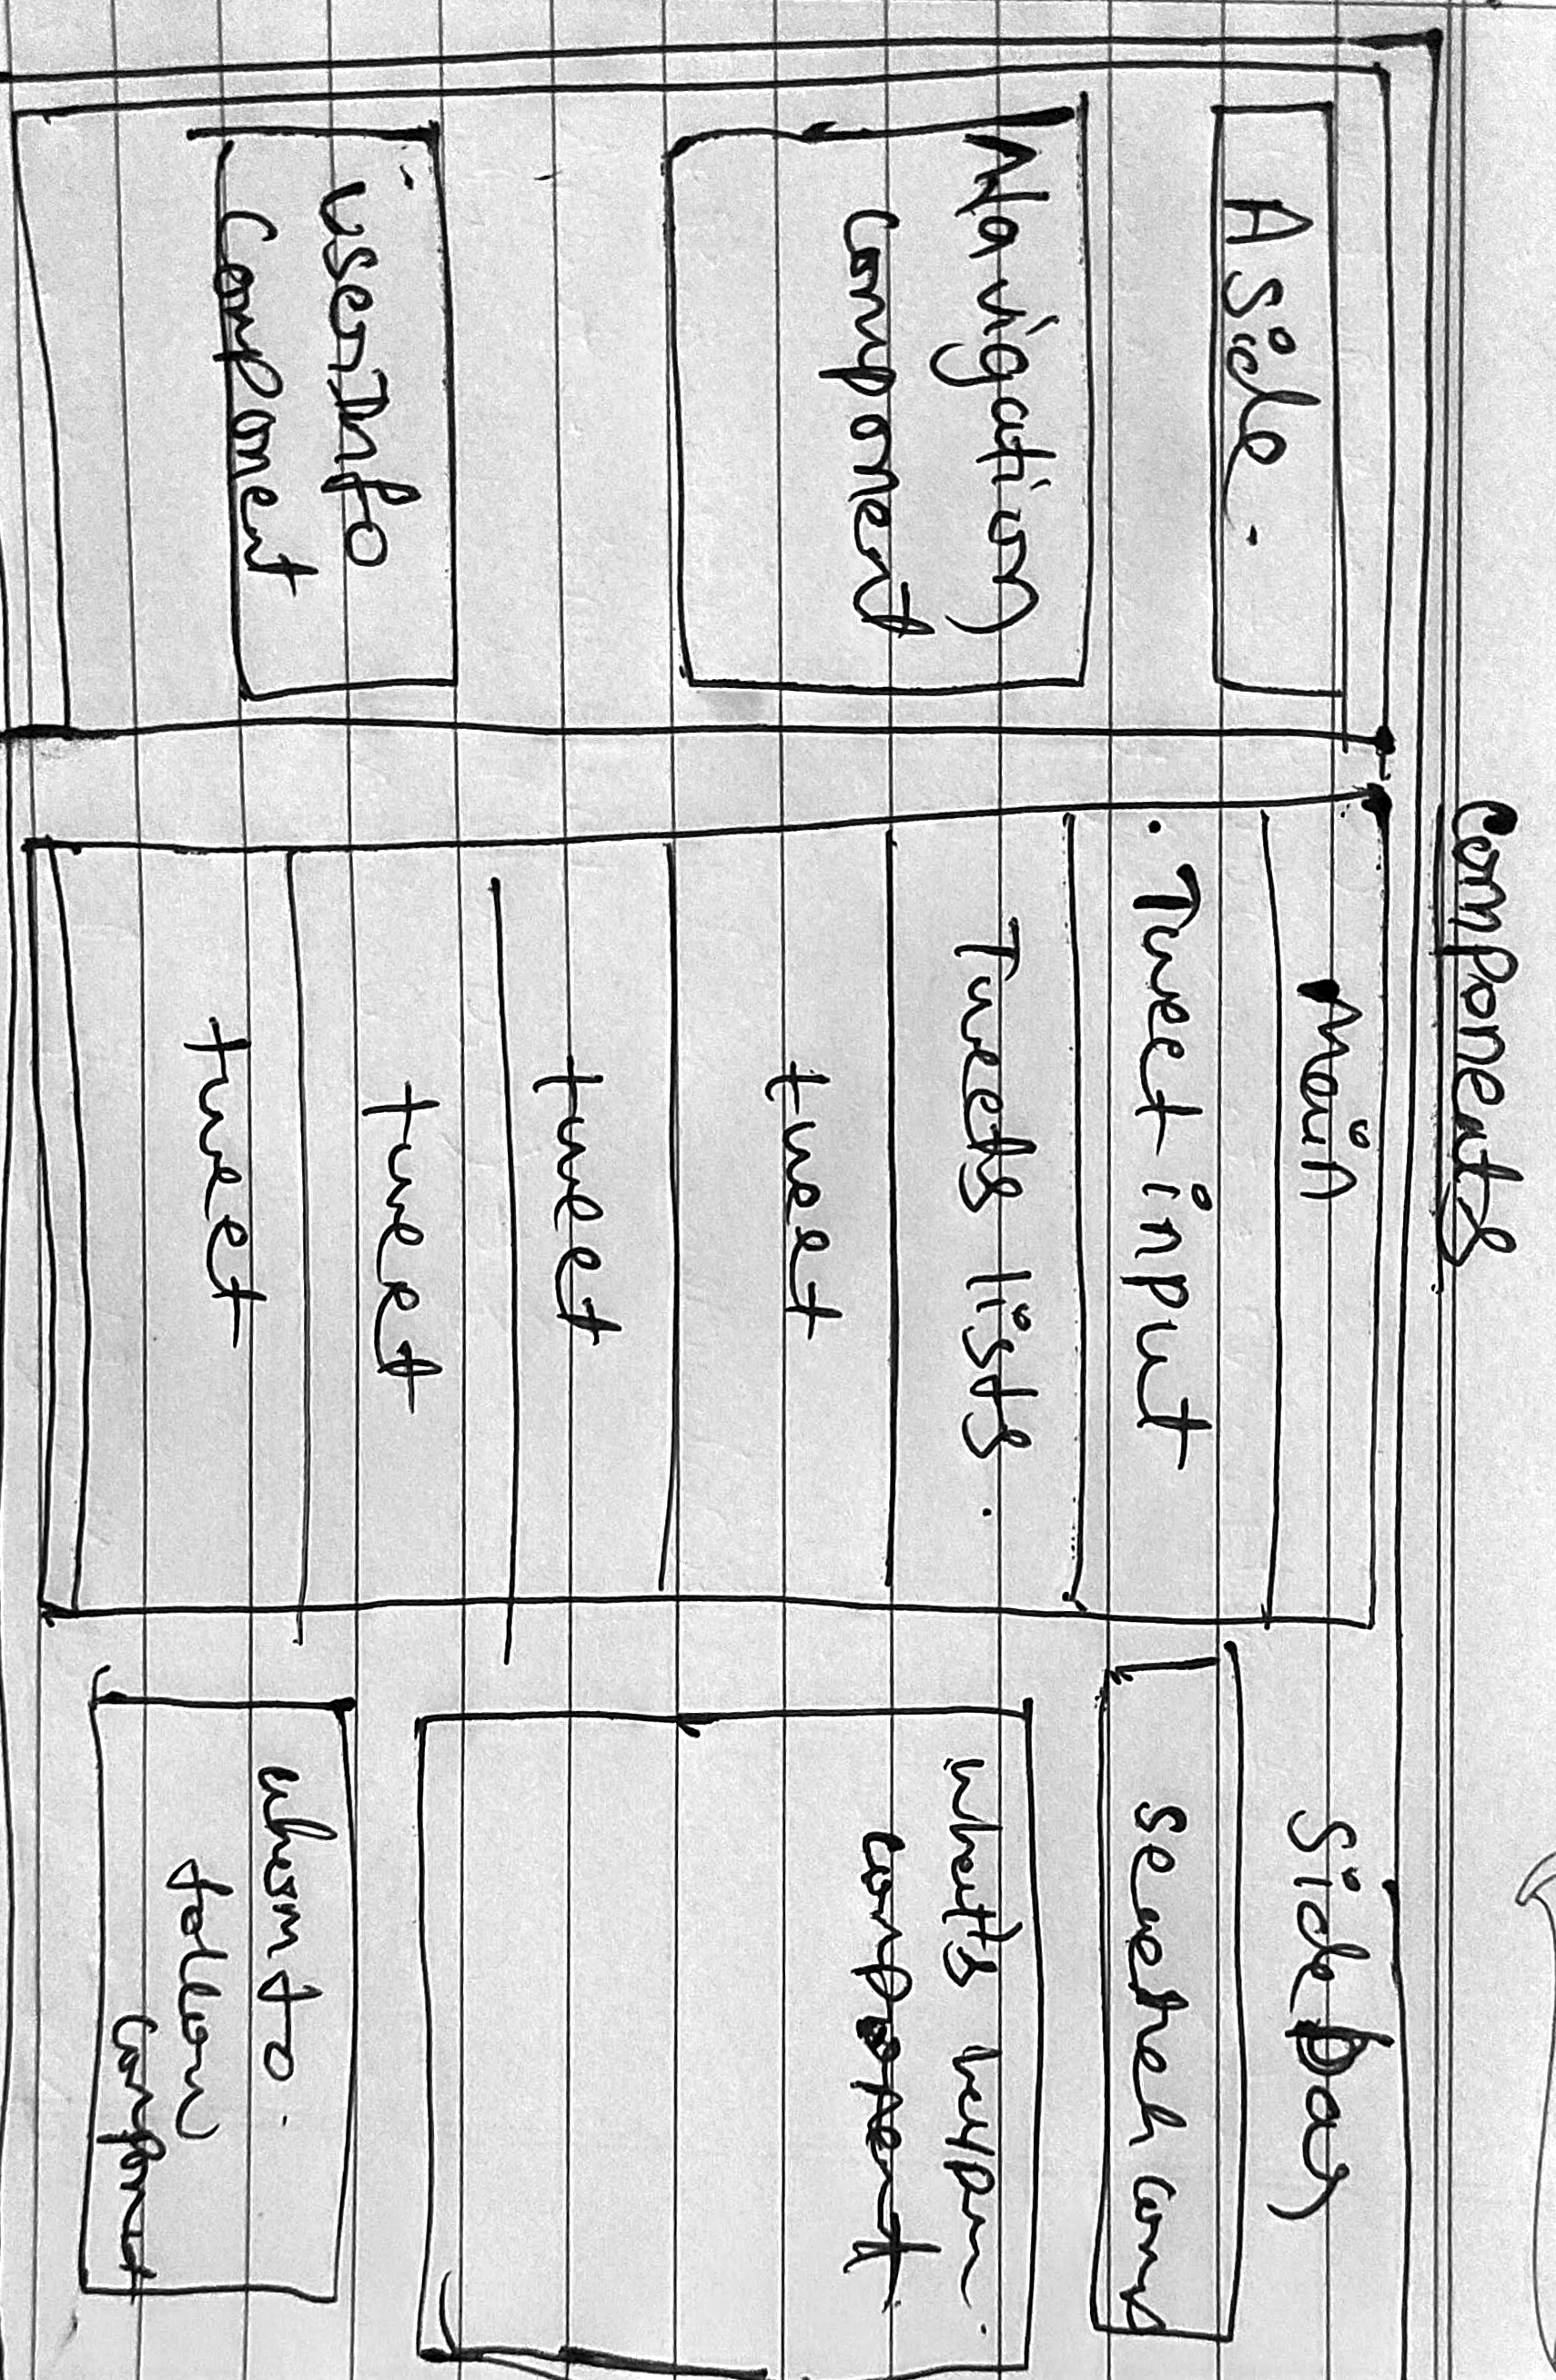 Components
Aside.
Navigation
component
userInfo
component
Main
Tweet input
Tweets lists.
tweet
tweet
tweet
tweet
Sidebar
what's
component
whom to
follow